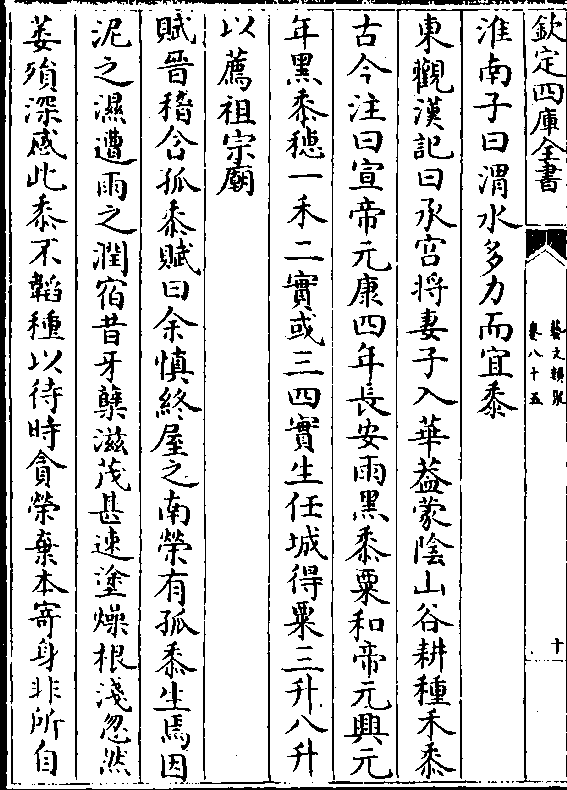 欽定四庫全書
藝文類聚
卷八十五
十
淮南子曰渭水多力而宜黍
東觀漢記曰承宫將妻子入華葢蒙陰山谷耕種禾黍
古今注曰宣帝元康四年長安雨黑黍粟和帝元興元
年黑黍穗一禾二實或三四實生任城得粟三升八升
以薦祖宗廟
賦晉嵇含孤黍賦曰余慎終屋之南榮有孤黍生焉因
泥之濕遭雨之潤宿昔牙蘖滋茂甚速塗燥根淺忽然
萎殞深感此黍不韜種以待時貪榮棄本寄身非所自